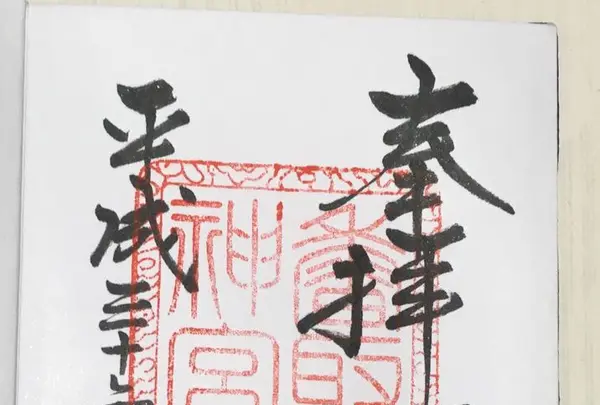 奉拝
香取
神宮
平成三十